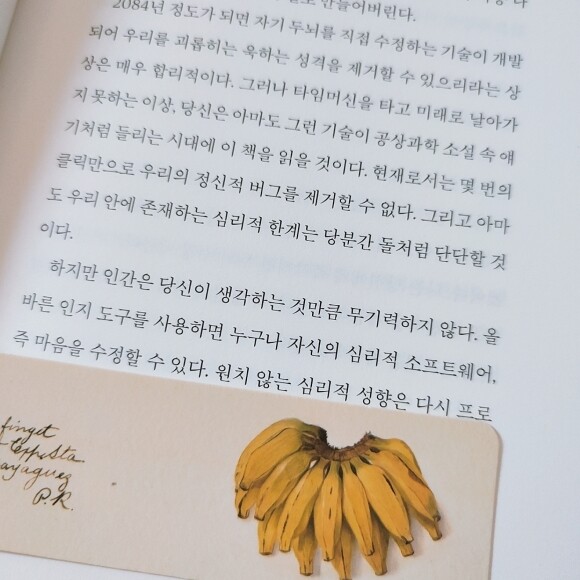 만들어버린다.
2084년 정도가 되면 자기 두뇌를 직접 수정하는 기술이 개발
되어 우리를 괴롭히는 욱하는 성격을 제거할 수 있으리라는 상
상은 매우 합리적이다. 그러나 타임머신을 타고 미래로 날아가
지 못하는 이상, 당신은 아마도 그런 기술이 공상과학 소설 속 얘
기처럼 들리는 시대에 이 책을 읽을 것이다. 현재로서는 몇 번의
클릭만으로 우리의 정신적 버그를 제거할 수 없다. 그리고 아마
도 우리 안에 존재하는 심리적 한계는 당분간 돌처럼 단단할 것
이다.
하지만 인간은 당신이 생각하는 것만큼 무기력하지 않다. 올
바른 인지 도구를 사용하면 누구나 자신의 심리적 소프트웨어,
즉 마음을 수정할 수 있다. 원치 않는 심리적 성향은 다시 프로
P.R.